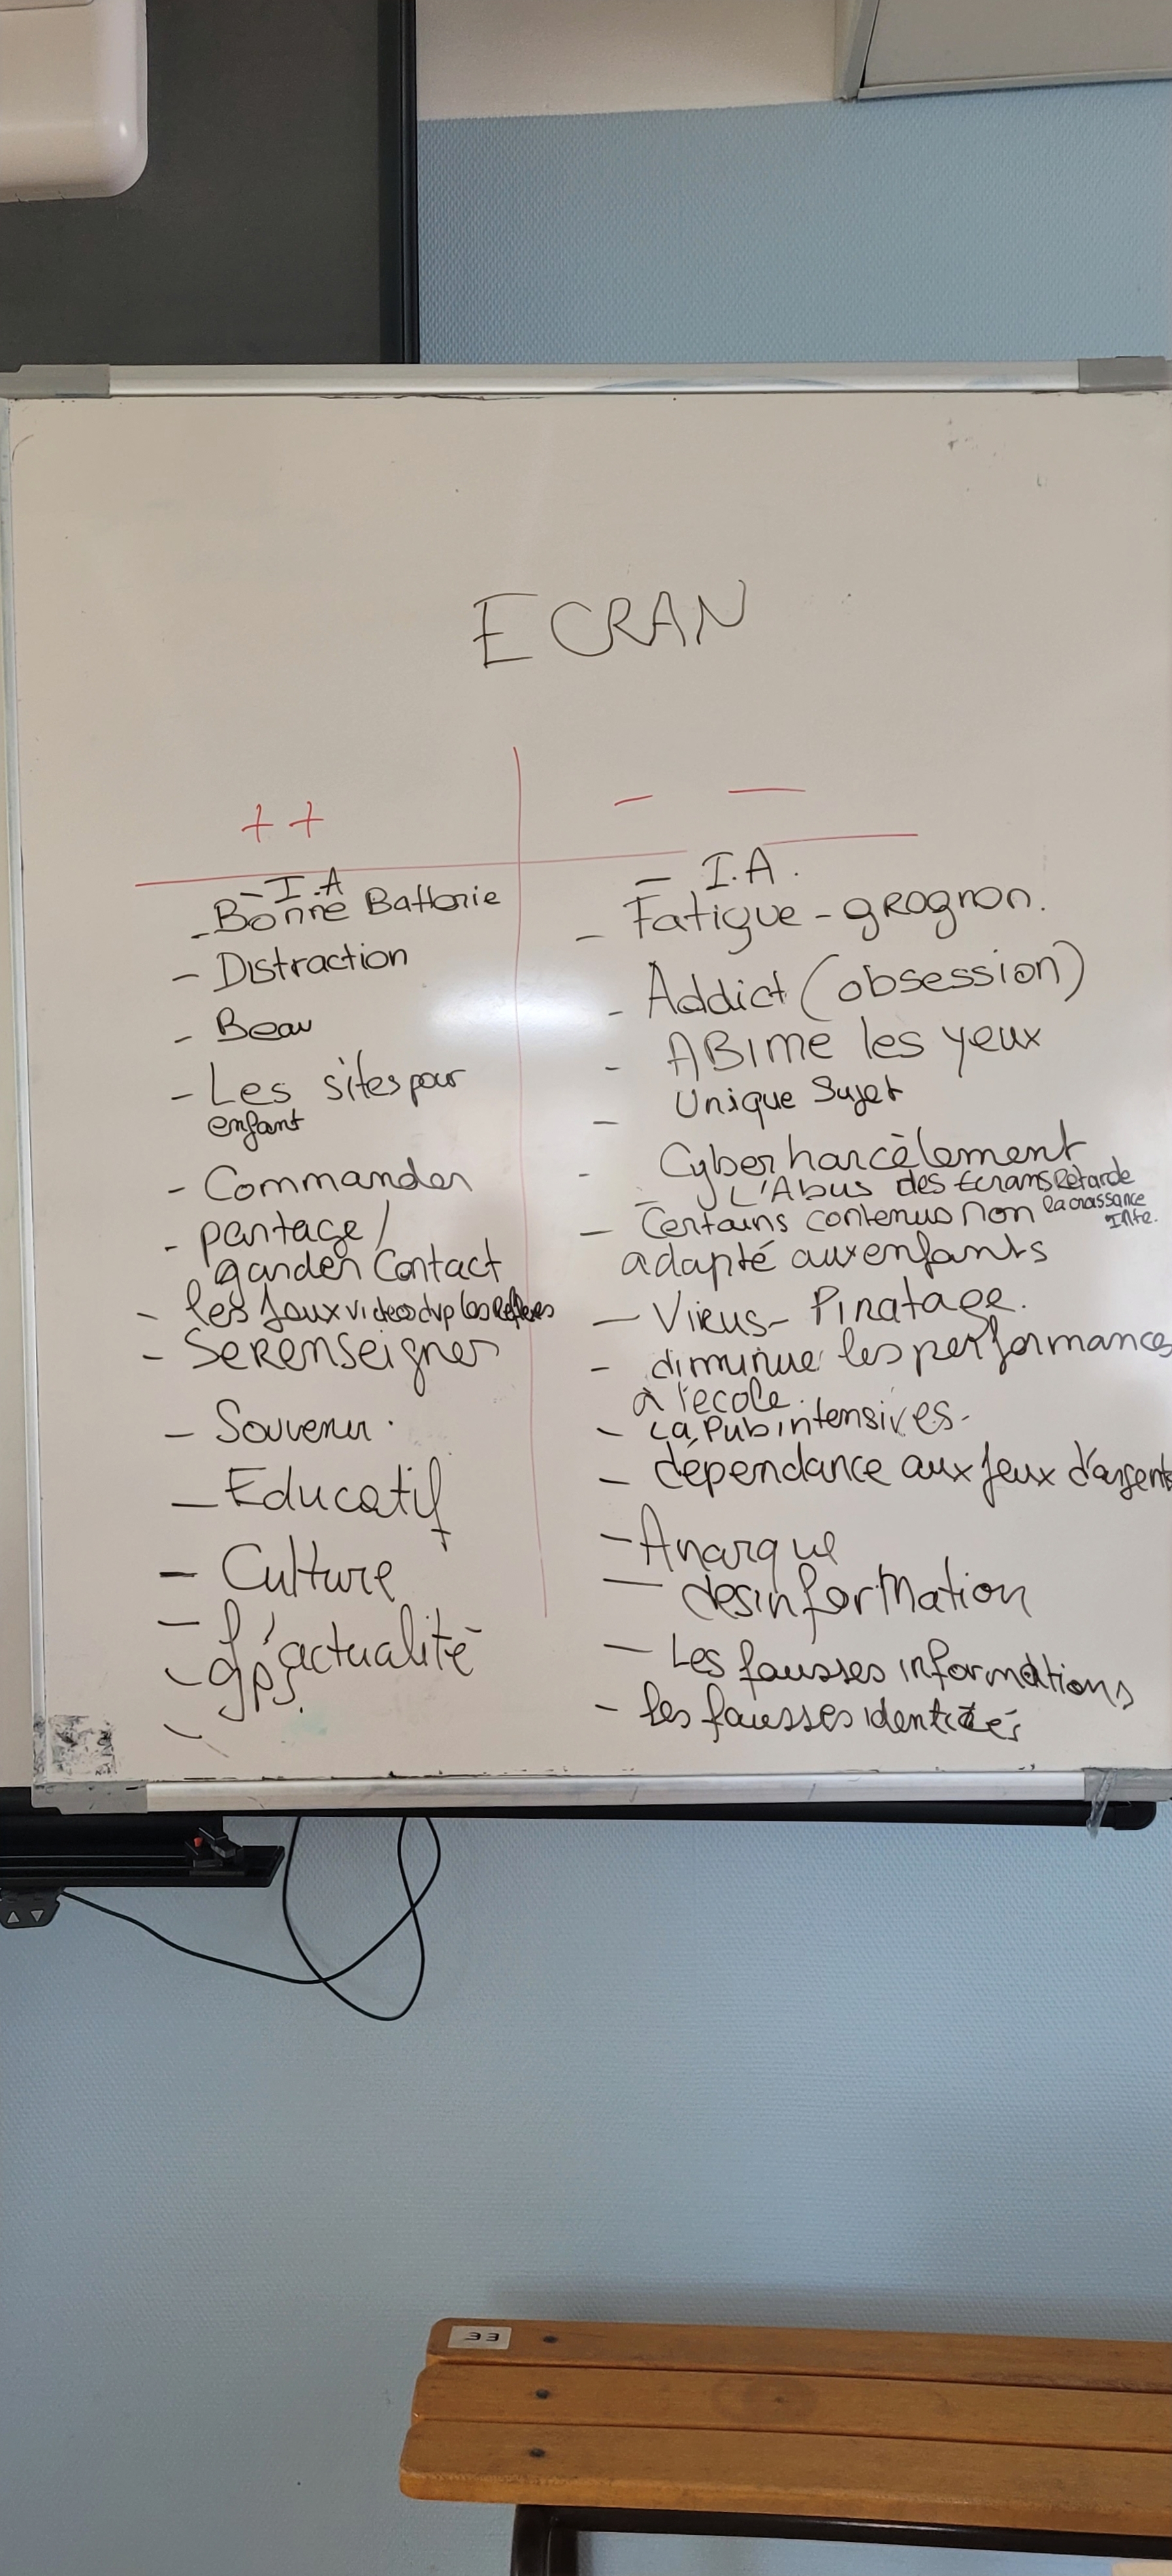 ECRAN
++
- -
- I.A
- Bonne Batterie
- Distraction
- Beau
- Les sites pour
enfant
- Commander
- partage /
garder Contact
- les Jeux videos dvp les Reflexes
- Se Renseigner
- Souvenir.
- Educatif
- Culture
- l'actualité
- gps.
-
- I.A.
- Fatigue - grognon.
- Addict (obsession)
- ABime les yeux
- Unique Sujet
- Cyber harcèlement
- L'Abus des Ecrans Retarde
la croissance
- Certains contenus non
adapté aux enfants
- Virus - Piratage.
- diminue les performances
à l'école.
- La Pub intensives.
- dépendance aux Jeux d'argents
- Anarque
- desinformation
- Les fausses informations
- les fausses identités
33